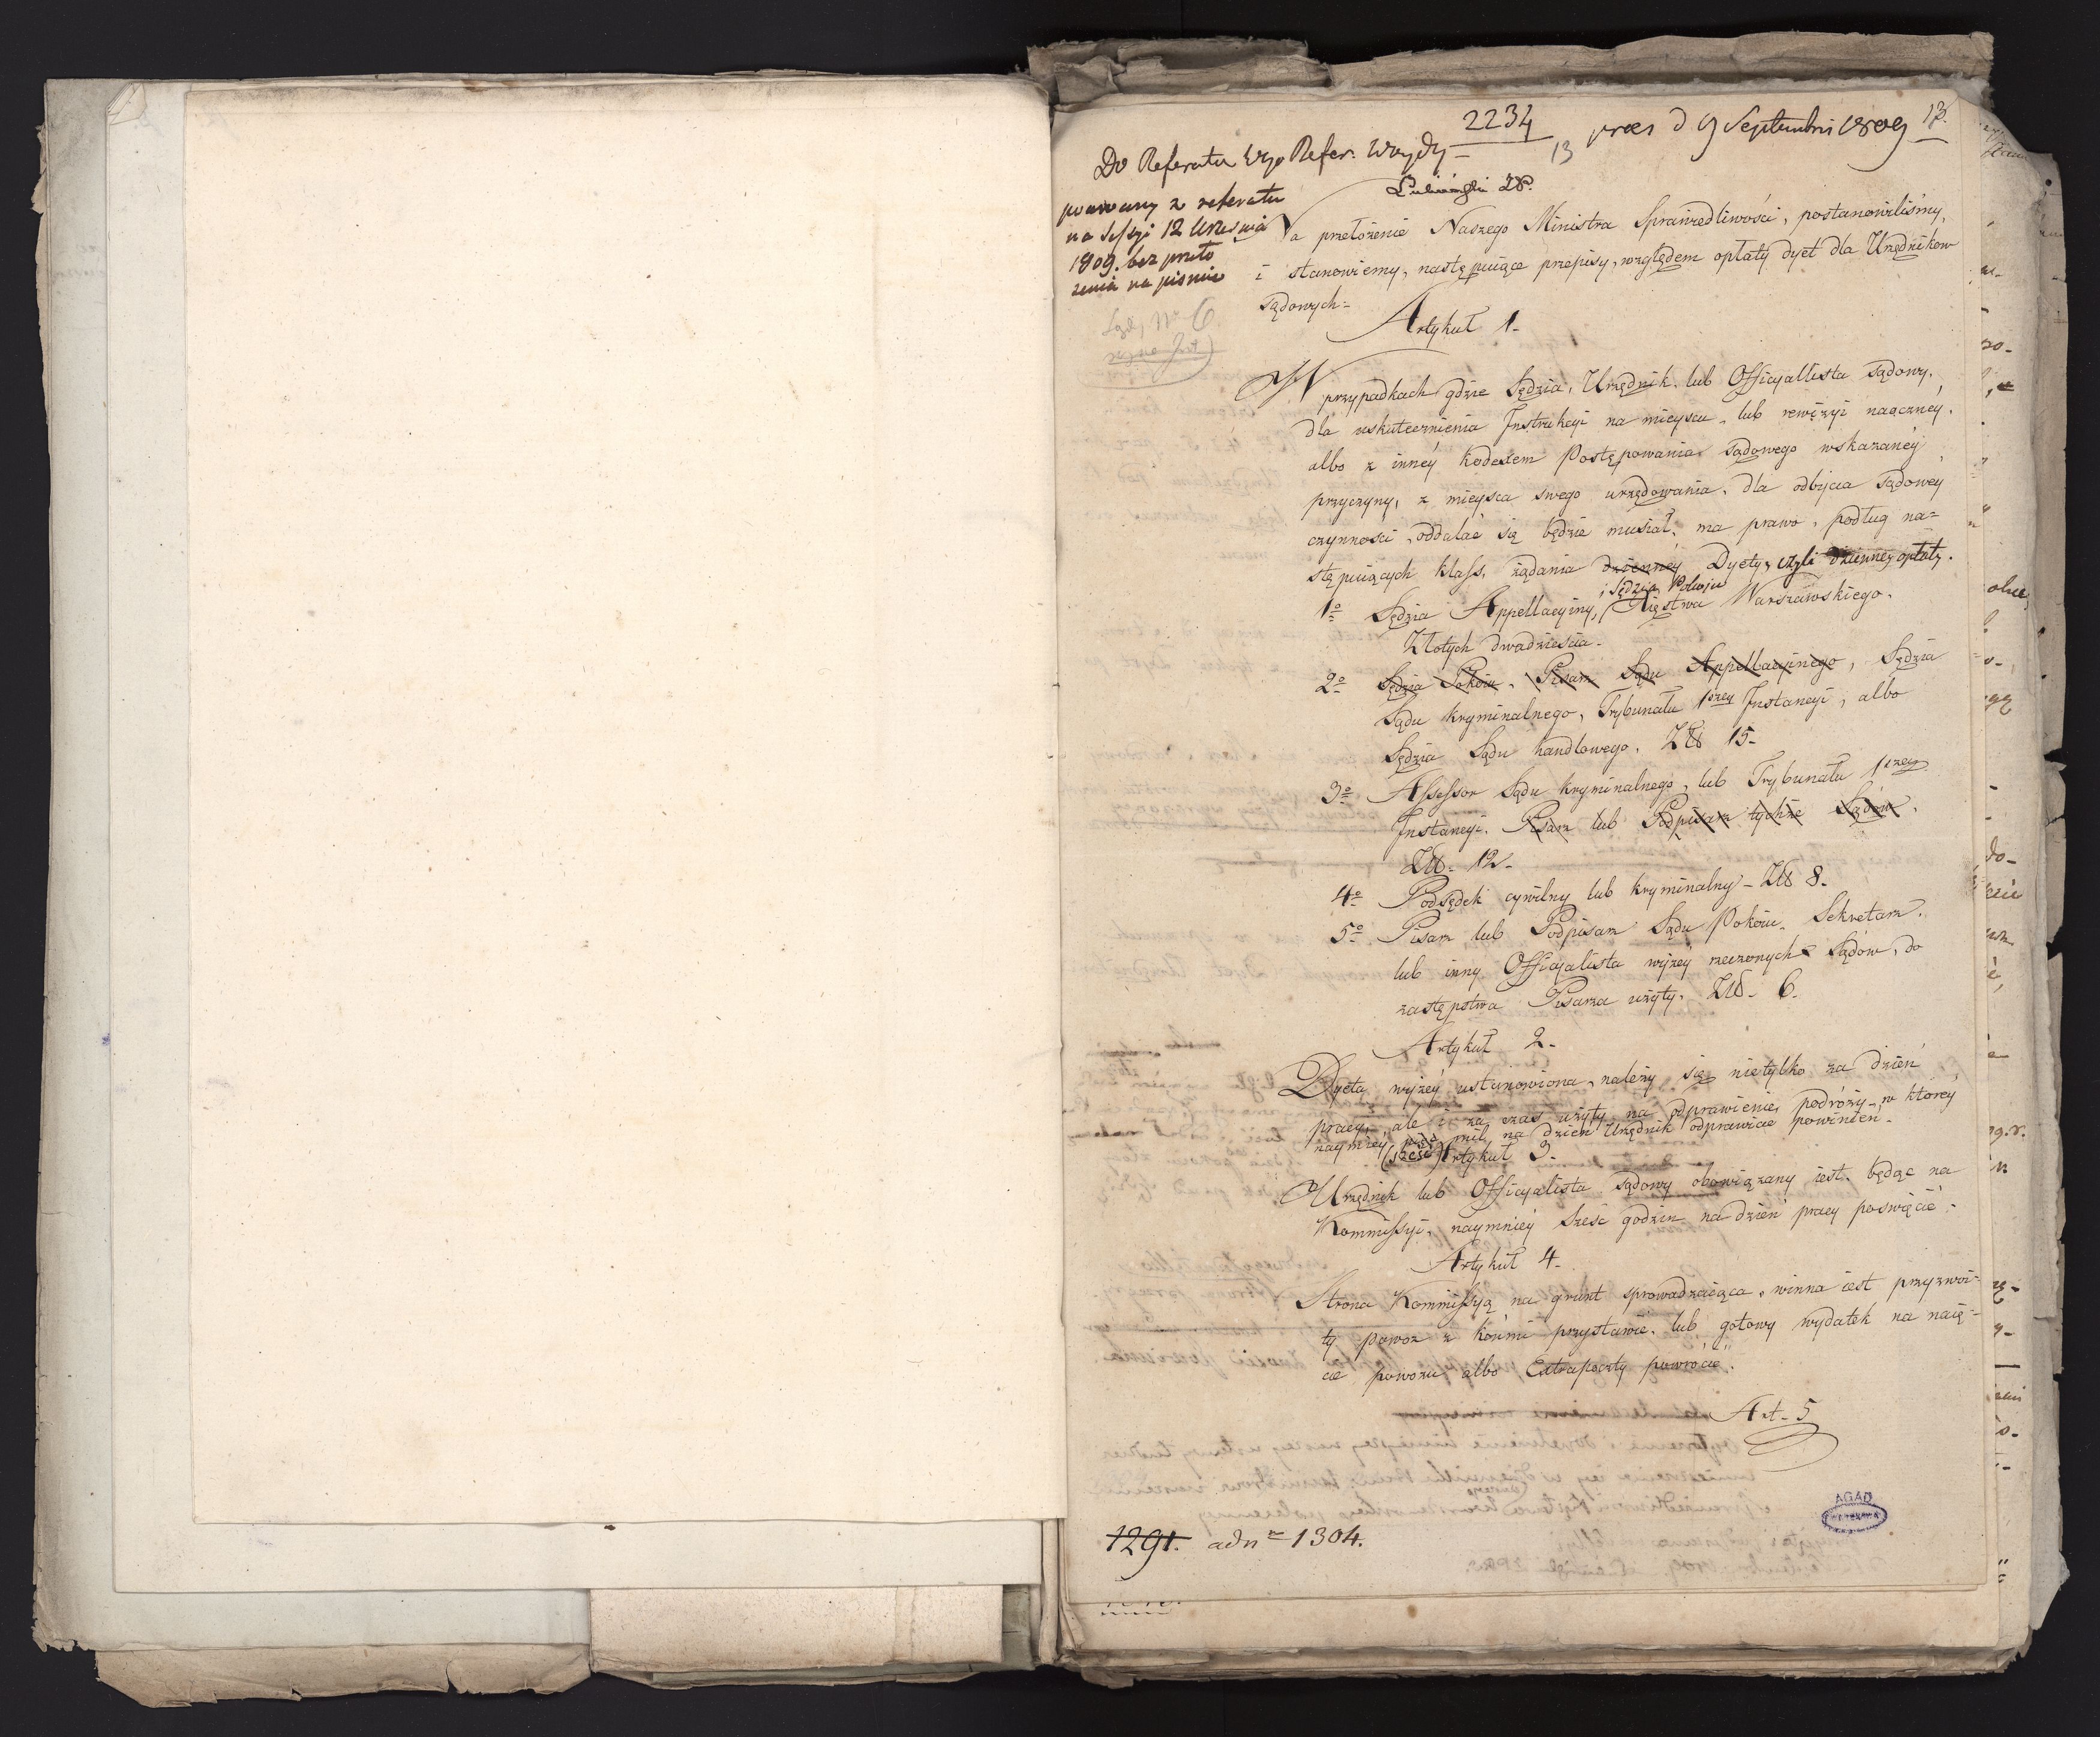 2234
13
praes d 9 Septembris 1809
13.
Do Referatu Wgo Refer. Woydy
Lubieński
powrocony z referatu
na Sessyi 12 Września
1809. bez przeło
żenia na piśmie
No 6
Na przełożenie Naszego Ministra Sprawiedliwości, postanowiliśmy,
i stanowiemy, następuiące przepisy, względem opłaty dyet dla Urzędnikow
sądowych=
Artykuł 1-
W przypadkach gdzie Sędzia, Urzędnik lub Officyallista sądowy,
dla uskutecznienia Instrukcyi na mieyscu, lub rewizyi naoczney,
albo z inney kodexem Postępowania sądowego wskazaney
przyczyny, z mieysca swego urzędowania, dla odbycia sądowey
czynności, oddalać się będzie musiał, ma prawo, podług na=
stępuiących klass, żądania dzienney Dyety, czyli dzienney opłaty.
i Sędzia Pokoju
1o Sędzia Appellacyiny, Xięstwa Warszawskiego.
Złotych dwadzieścia-
2o Sędzia Pokoiu, Pisarz Sądu Appellacyinego, Sędzia
Sądu kryminalnego, Trybunału 1szey Instancyi, albo
Sędzia Sądu handlowego. Złł 15-
3o Assessor Sądu kryminalnego, lub Trybunału 1szey
Instancyi. Pisarz lub Podpisarz tychże Sądów.
Złł- 12-
4o Podsędek cywilny lub kryminalny- Złł 8-
5o Pisarz lub Podpisarz Sądu Pokoiu, Sekretarz.
lub inny Officyalista wyżey rzeczonych Sądów, do
zastępstwa Pisarza użyty. Złł- 6-
Artykuł 2-
Dyeta wyżey ustanowiona, należy się nietylko za dzień
pracy, ale i za czas użyty na odprawienie podróży, w ktorey
naymniey pięć mil na dzień Urzędnik odprawiać powinien-
(sześć) Artykuł 3-
Urzędnik lub Officyalista sądowy obowiązany iest, będąc na
Kommissyi, naymniey sześć godzin na dzień pracy poświęcić-
Artykuł 4-
Strona Kommissyą na grunt sprowadzaiąca, winna iest przyzwoi=
ty powoz z końmi przystawić, lub gotowy wydatek na naię=
cie powozu albo Extrapoczty powrócić.
Art- 5
1291. adn 1304.
AGAD